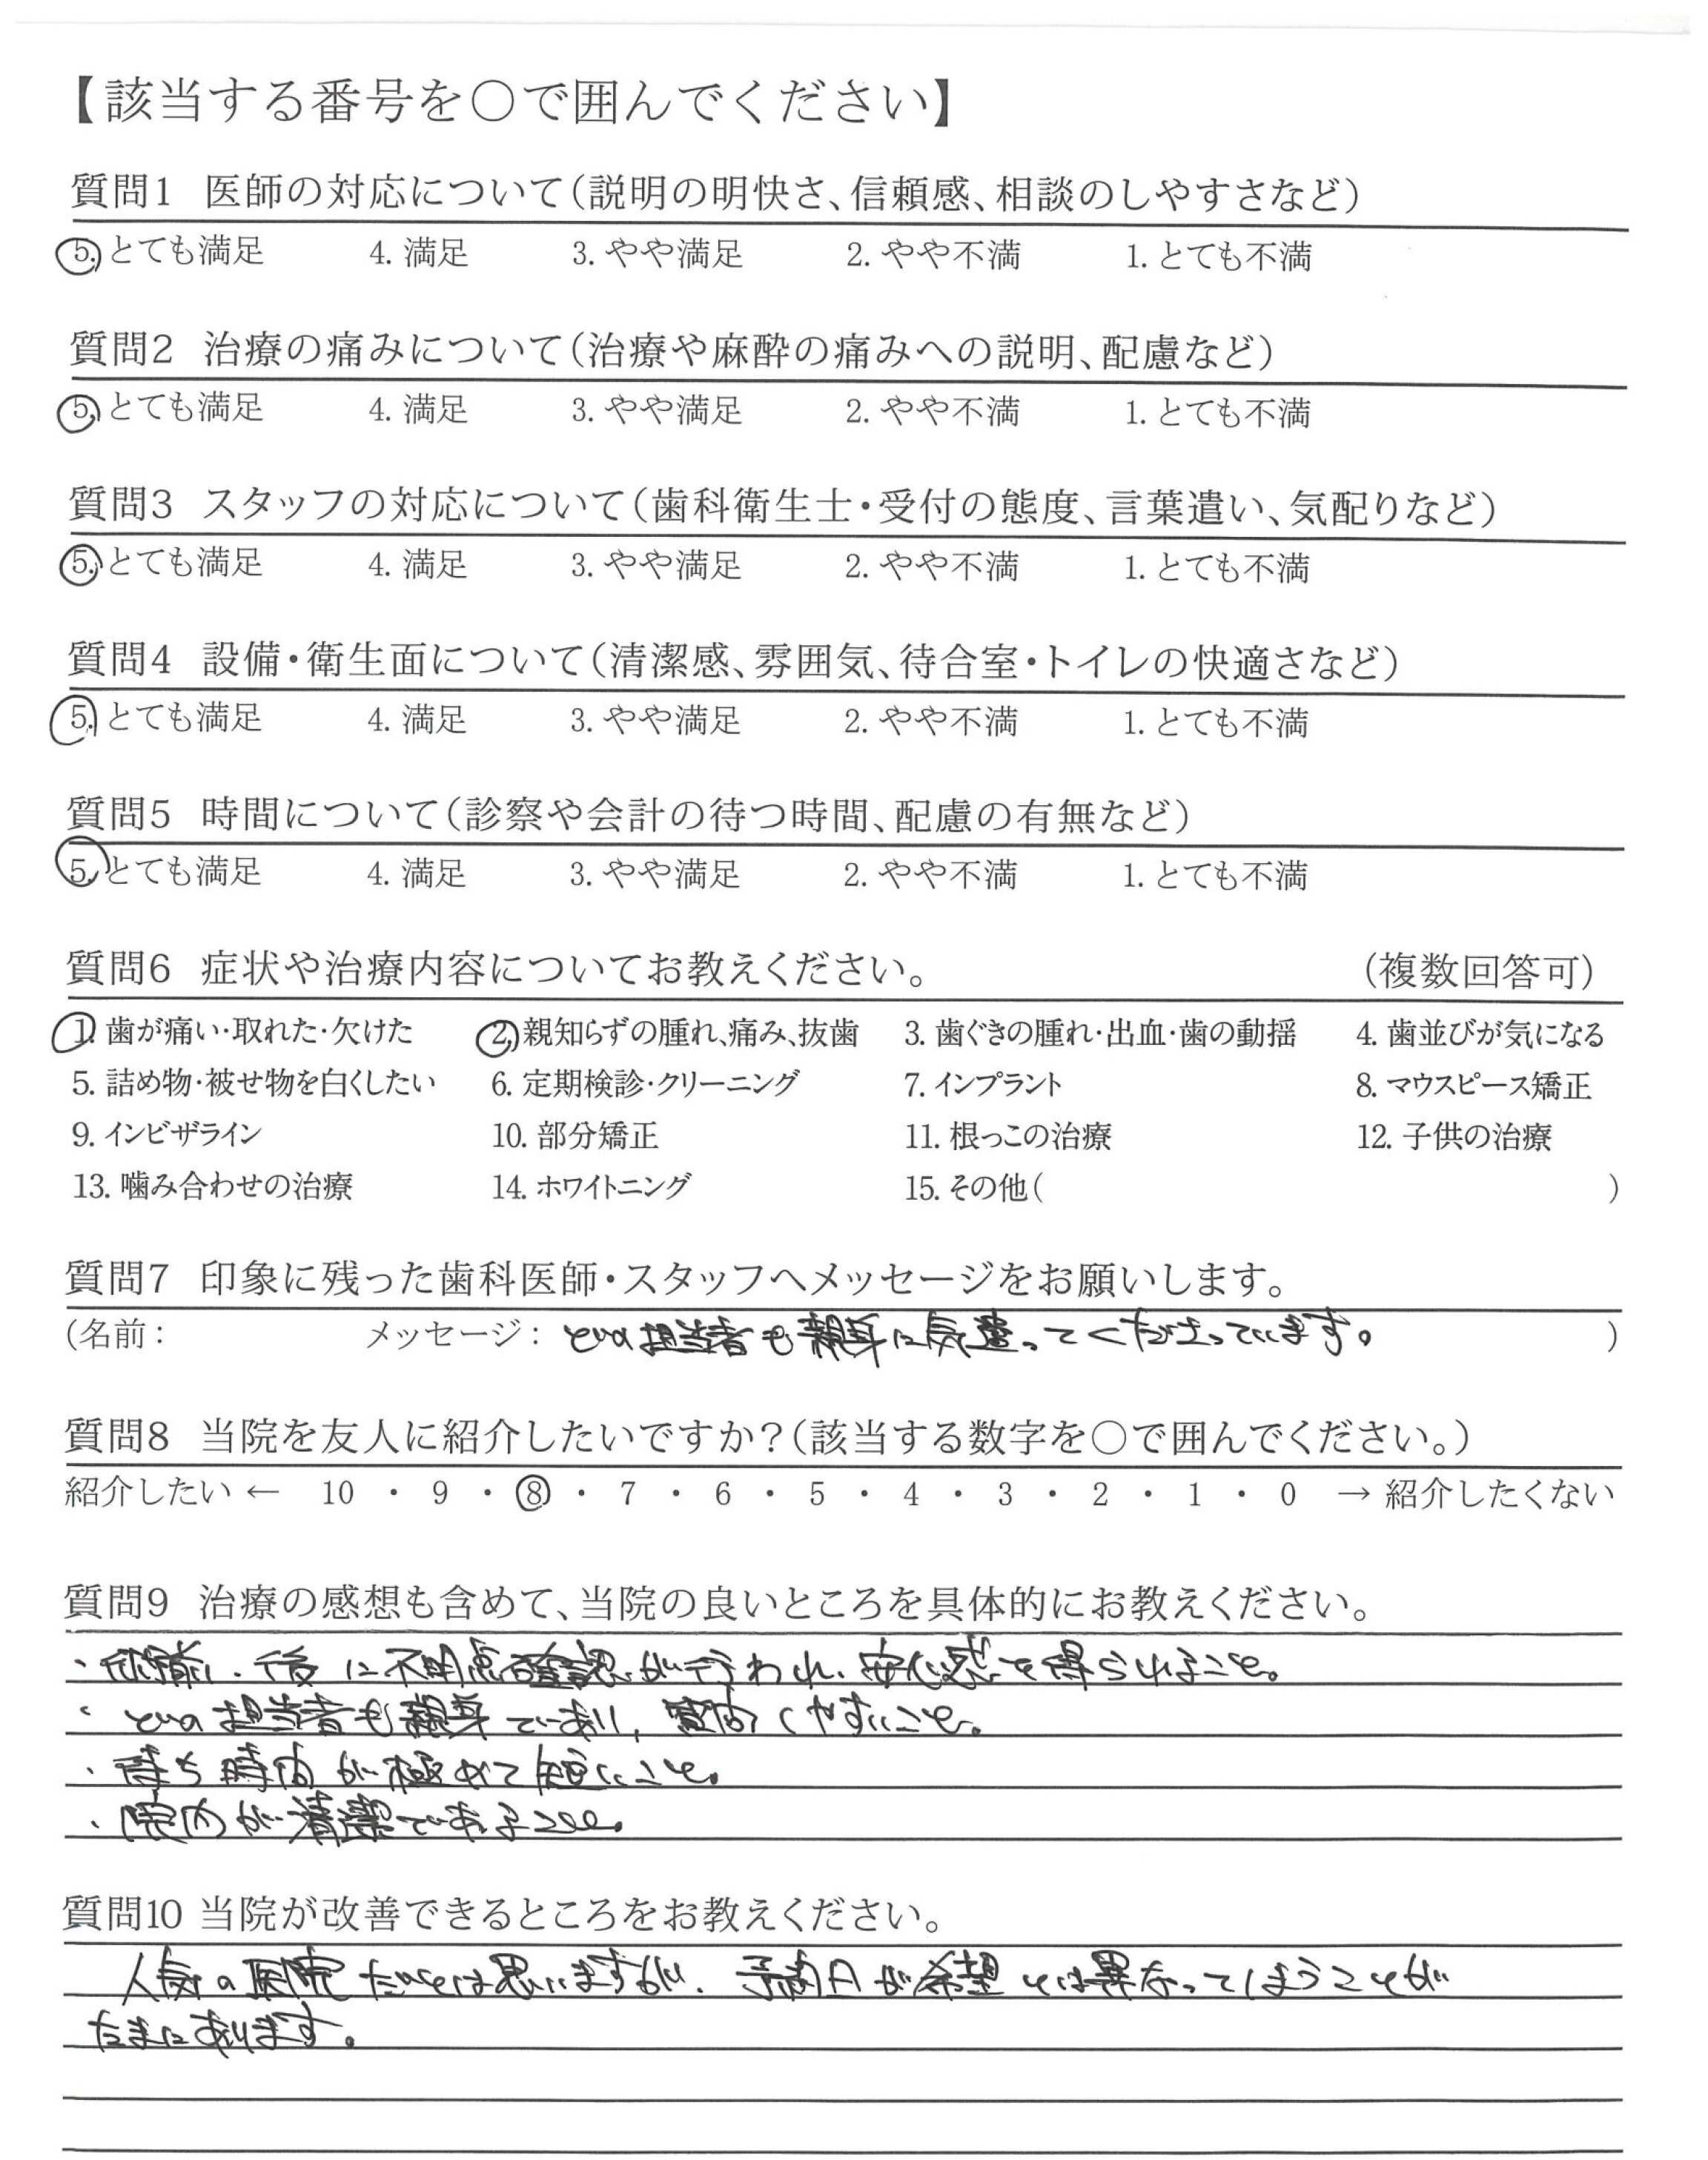 【該当する番号を○で囲んでください】
質問1 医師の対応について(説明の明快さ、信頼感、相談のしやすさなど)
5. とても満足 4. 満足 3. やや満足 2. やや不満 1. とても不満
質問2 治療の痛みについて(治療や麻酔の痛みへの説明、配慮など)
5. とても満足 4. 満足 3. やや満足 2. やや不満 1. とても不満
質問3 スタッフの対応について(歯科衛生士・受付の態度、言葉遣い、気配りなど)
5. とても満足 4. 満足 3. やや満足 2. やや不満 1. とても不満
質問4 設備・衛生面について(清潔感、雰囲気、待合室・トイレの快適さなど)
5. とても満足 4. 満足 3. やや満足 2. やや不満 1. とても不満
質問5 時間について(診察や会計の待つ時間、配慮の有無など)
5. とても満足 4. 満足 3. やや満足 2. やや不満 1. とても不満
質問6 症状や治療内容についてお教えください。 (複数回答可)
1. 歯が痛い・取れた・欠けた 2. 親知らずの腫れ、痛み、抜歯 3. 歯ぐきの腫れ・出血・歯の動揺 4. 歯並びが気になる
5. 詰め物・被せ物を白くしたい 6. 定期検診・クリーニング 7. インプラント 8. マウスピース矯正
9. インビザライン 10. 部分矯正 11. 根っこの治療 12. 子供の治療
13. 噛み合わせの治療 14. ホワイトニング 15. その他( )
質問7 印象に残った歯科医師・スタッフへメッセージをお願いします。
(名前： メッセージ：どの担当者も親身に気遣ってくださっています。 )
質問8 当院を友人に紹介したいですか?(該当する数字を○で囲んでください。)
紹介したい ← 10 ・ 9 ・ 8 ・ 7 ・ 6 ・ 5 ・ 4 ・ 3 ・ 2 ・ 1 ・ 0 → 紹介したくない
質問9 治療の感想も含めて、当院の良いところを具体的にお教えください。
・術前、後に不明点確認が行われ、安心感を得られること。
・どの担当者も親身であり、質問しやすいこと。
・待ち時間が極めて短いこと。
・院内が清潔であること。
質問10 当院が改善できるところをお教えください。
人気の医院だとは思いますが、予約日が希望とは異なってしまうことが
たまにあります。